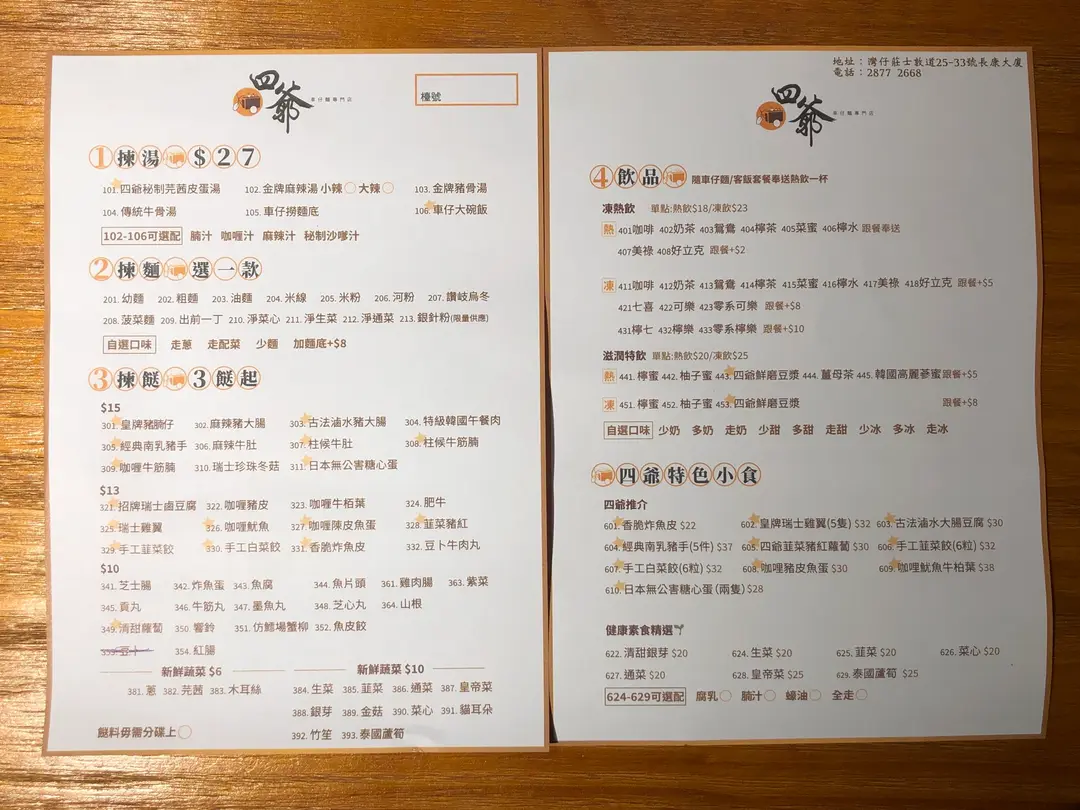 四爺
車仔麵專門店
檯號
1 揀湯 $27
101.四爺秘制芫茜皮蛋湯 102.金牌麻辣湯 小辣 大辣 103.金牌豬骨湯
104.傳統牛骨湯 105.車仔撈麵底 106.車仔大碗飯
102-106可選配 腩汁 咖喱汁 麻辣汁 秘制沙嗲汁
2 揀麵 選一款
201.幼麵 202.粗麵 203.油麵 204.米線 205.米粉 206.河粉 207.讚岐烏冬
208.菠菜麵 209.出前一丁 210.淨菜心 211.淨生菜 212.淨通菜 213.銀針粉(限量供應)
自選口味 走蔥 走配菜 少麵 加麵底+$8
3 揀餸 3餸起
$15
301.皇牌豬腩仔 302.麻辣豬大腸 303.古法滷水豬大腸 304.特級韓國午餐肉
305.經典南乳豬手 306.麻辣牛肚 307.柱候牛肚 308.柱候牛筋腩
309.咖喱牛筋腩 310.瑞士珍珠冬菇 311.日本無公害糖心蛋
$13
321.招牌瑞士鹵豆腐 322.咖喱豬皮 323.咖喱牛栢葉 324.肥牛
325.瑞士雞翼 326.咖喱魷魚 327.咖喱陳皮魚蛋 328.韮菜豬紅
329.手工韮菜餃 330.手工白菜餃 331.香脆炸魚皮 332.豆卜牛肉丸
$10
341.芝士腸 342.炸魚蛋 343.魚腐 344.魚片頭 361.雞肉腸 363.紫菜
345.貢丸 346.牛筋丸 347.墨魚丸 348.芝心丸 364.山根
349.清甜蘿蔔 350.響鈴 351.仿鱈場蟹柳 352.魚皮餃
豆卜 354.紅腸
新鮮蔬菜 $6
381.蔥 382.芫茜 383.木耳絲
新鮮蔬菜 $10
384.生菜 385.韮菜 386.通菜 387.皇帝菜
388.銀芽 389.金菇 390.菜心 391.貓耳朵
392.竹笙 393.泰國蘆筍
餸料毋需分碟上
地址：灣仔莊士敦道25-33號長康大廈
電話：2877 2668
四爺
車仔麵專門店
4 飲品 隨車仔麵/客飯套餐奉送熱飲一杯
凍熱飲 單點:熱飲$18/凍飲$23
熱 401咖啡 402奶茶 403鴛鴦 404檸茶 405菜蜜 406檸水 跟餐奉送
407美祿 408好立克 跟餐+$2
凍 411咖啡 412奶茶 413鴛鴦 414檸茶 415菜蜜 416檸水 417美祿 418好立克 跟餐+$5
421七喜 422可樂 423零系可樂 跟餐+$8
431檸七 432檸樂 433零系檸樂 跟餐+$10
滋潤特飲 單點:熱飲$20/凍飲$25
熱 441.檸蜜 442.柚子蜜 443.四爺鮮磨豆漿 444.薑母茶 445.韓國高麗蔘蜜 跟餐+$5
凍 451.檸蜜 452.柚子蜜 453.四爺鮮磨豆漿 跟餐+$8
自選口味 少奶 多奶 走奶 少甜 多甜 走甜 少冰 多冰 走冰
四爺特色小食
四爺推介
601.香脆炸魚皮 $22 602.皇牌瑞士雞翼(5隻) $32 603.古法滷水大腸豆腐 $30
604.經典南乳豬手(5件) $37 605.四爺韮菜豬紅蘿蔔 $30 606.手工韮菜餃(6粒) $32
607.手工白菜餃(6粒) $32 608.咖哩豬皮魚蛋 $30 609.咖哩魷魚牛柏葉 $38
610.日本無公害糖心蛋(兩隻) $28
健康素食精選
622.清甜銀芽 $20 624.生菜 $20 625.韮菜 $20 626.菜心 $20
627.通菜 $20 628.皇帝菜 $25 629.泰國蘆筍 $25
624-629可選配 腐乳 腩汁 蠔油 全走